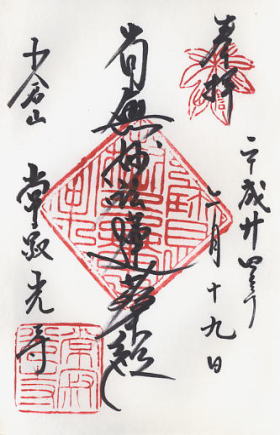 奉拝
平成廿四年
六月十九日
南無妙法蓮華経
小倉山
常寂光寺